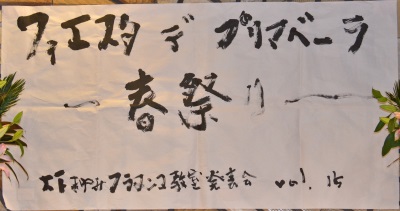 フィエスタ デ プリマベーラ
~春祭り~
フラメンコ教室発表会 vol. 15